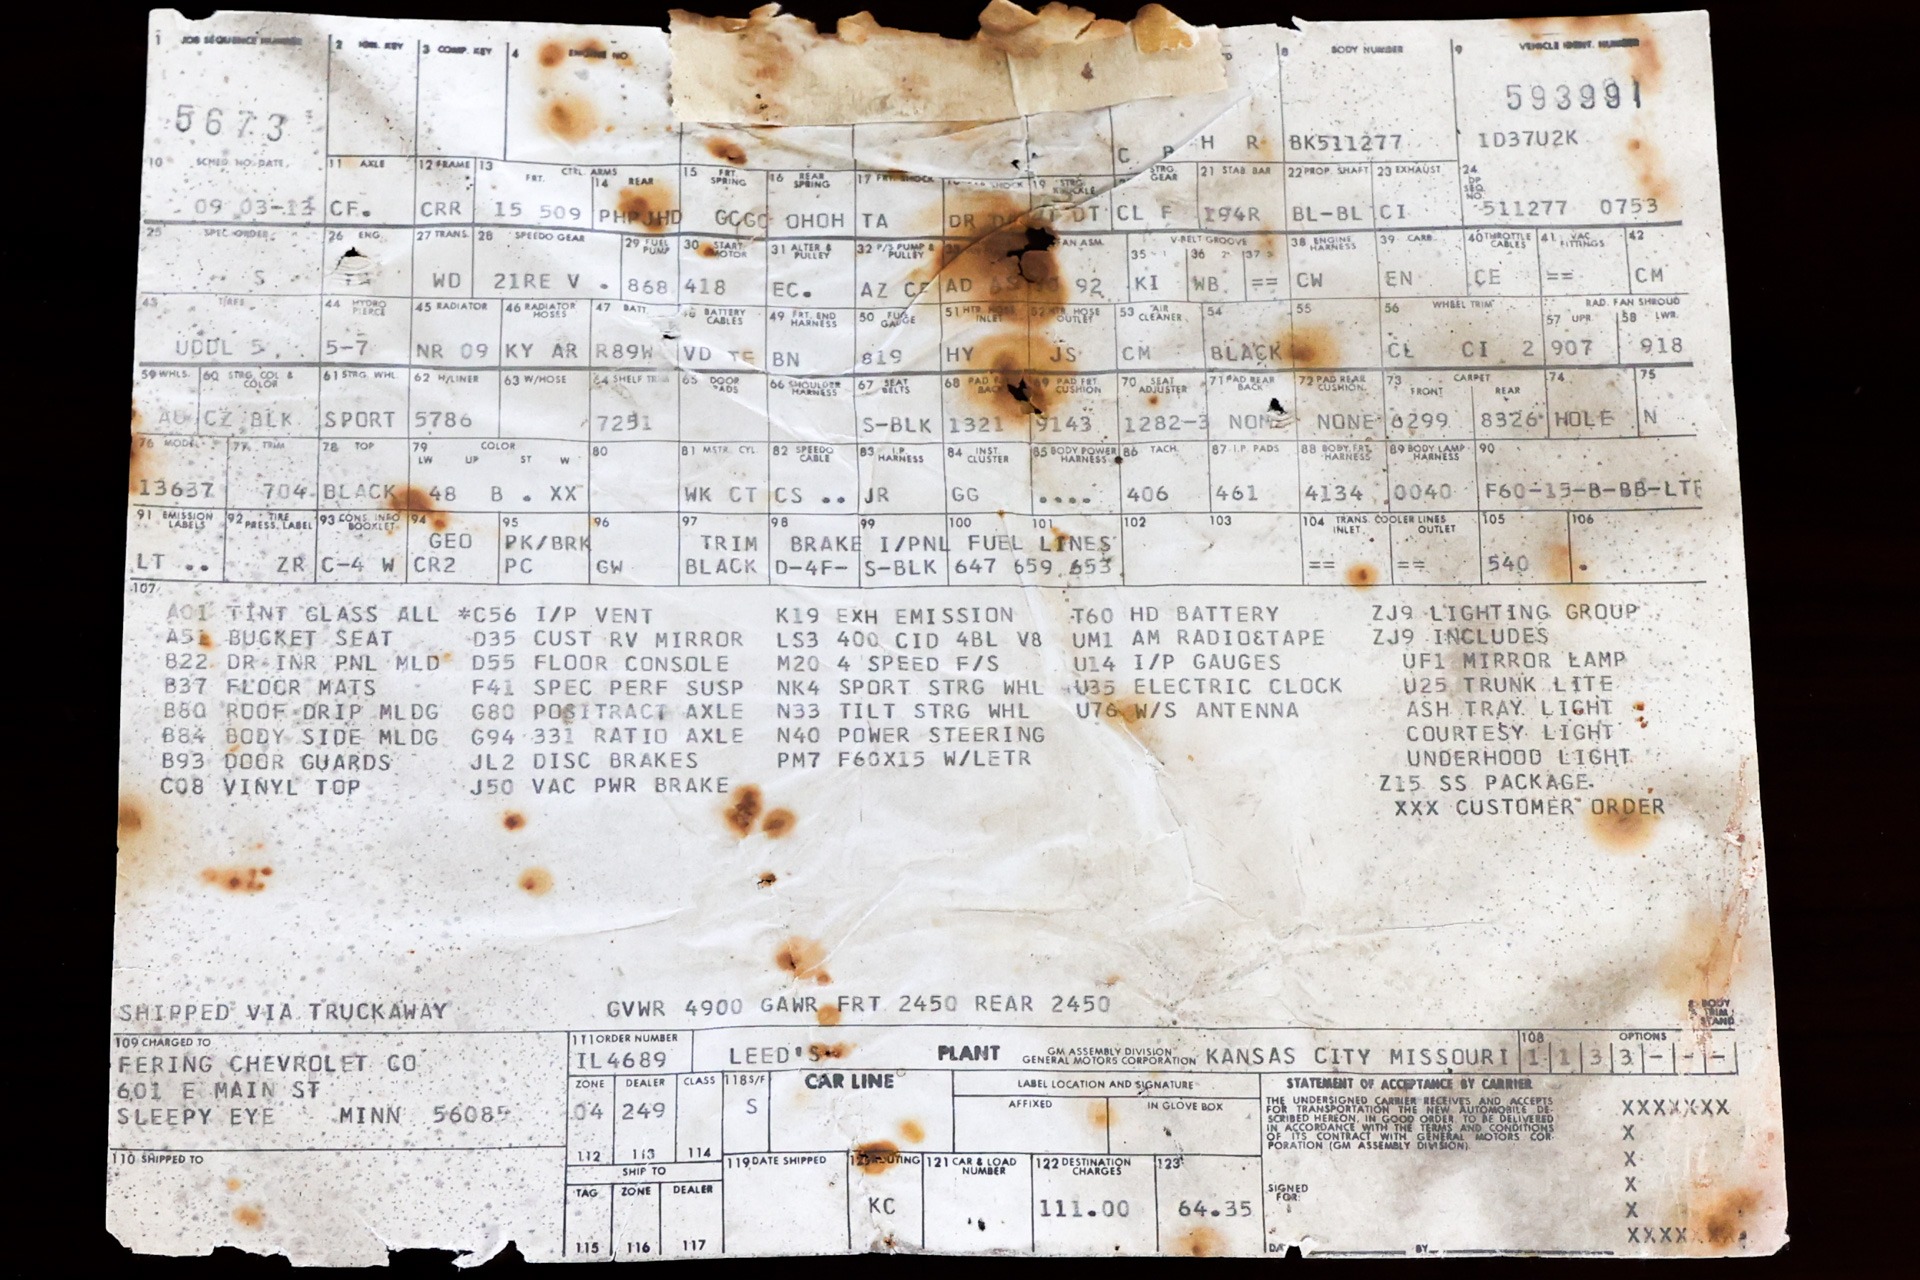 1 JOB SEQUENCE NUMBER 2 3 COMP. KEY 4 ENGINE NO 8 BODY NUMBER 9 VEHICLE IDENT. NUMBER
5673 593991
C H R BK511277 1D37U2K
10 SCHED NO. DATE 11 AXLE 12 FRAME 13 FRT. CTRL. ARMS 14 REAR 15 FRT. SPRING 16 REAR SPRING 17 FRT. SHOCK SHOCK 19 STRG. KNUCKLE STRG. GEAR 21 STAB BAR 22 PROP. SHAFT 23 EXHAUST 24 DP SEQ. NO.
09 03-13 CF. CRR 15 509 GCGC OHOH TA DR DT CL F 194R BL-BL CI 511277 0753
25 SPEC. ORDER 26 ENG. 27 TRANS. 28 SPEEDO GEAR 29 FUEL PUMP 30 START. MOTOR 31 ALTER & PULLEY 32 P/S PUMP & PULLEY 33 FAN ASM. V-BELT GROOVE 35 36 37 38 ENGINE HARNESS 39 CARB. 40 THROTTLE CABLES 41 VAC. FITTINGS 42
S WD 21RE V . 868 418 EC. AZ AD 92 KI WB == CW EN CE == CM
43 TIRES 44 HYDRO PIERCE 45 RADIATOR 46 RADIATOR HOSES 47 BATT. 48 BATTERY CABLES 49 FRT. END HARNESS 50 FUEL GAUGE 51 HTR HOSE INLET 52 HTR HOSE OUTLET 53 AIR CLEANER 54 55 56 WHEEL TRIM RAD. FAN SHROUD 57 UPR. 58 LWR.
UDDL 5 5-7 NR 09 KY AR R89W VD TE BN 819 HY JS CM BLACK CL CI 2 907 918
59 WHLS. 60 STRG. COL & COLOR 61 STRG. WHL. 62 H/LINER 63 W/HOSE 64 SHELF TRIM 65 DOOR PADS 66 SHOULDER HARNESS 67 SEAT BELTS 68 PAD FRT. BACK 69 PAD FRT. CUSHION 70 SEAT ADJUSTER 71 PAD REAR BACK 72 PAD REAR CUSHION 73 CARPET FRONT REAR 74 75
AU CZ BLK SPORT 5786 7251 S-BLK 1321 9143 1282-3 NONE NONE 6299 8326 HOLE N
76 MODEL 77 TRIM 78 TOP 79 COLOR LW UP ST W 80 81 MSTR. CYL. 82 SPEEDO CABLE 83 I.P. HARNESS 84 INST. CLUSTER 85 BODY POWER HARNESS 86 TACH. 87 I.P. PADS 88 BODY FRT. HARNESS 89 BODY LAMP HARNESS 90
13637 704 BLACK 48 B . XX WK CT CS .. JR GG .... 406 461 4134 0040 F60-15-B-BB-LTR
91 EMISSION LABELS 92 TIRE PRESS. LABEL 93 CONS. INFO BOOKLET 94 95 96 97 98 99 100 101 102 103 104 TRANS. COOLER LINES INLET OUTLET 105 106
GEO PK/BRK TRIM BRAKE I/PNL FUEL LINES
LT .. ZR C-4 W CR2 PC GW BLACK D-4F- S-BLK 647 659 653 == == 540 .
107
A01 TINT GLASS ALL *C56 I/P VENT K19 EXH EMISSION T60 HD BATTERY ZJ9 LIGHTING GROUP
A51 BUCKET SEAT D35 CUST RV MIRROR LS3 400 CID 4BL V8 UM1 AM RADIO&TAPE ZJ9 INCLUDES
B22 DR INR PNL MLD D55 FLOOR CONSOLE M20 4 SPEED F/S U14 I/P GAUGES UF1 MIRROR LAMP
B37 FLOOR MATS F41 SPEC PERF SUSP NK4 SPORT STRG WHL U35 ELECTRIC CLOCK U25 TRUNK LITE
B80 ROOF DRIP MLDG G80 POSITRACT AXLE N33 TILT STRG WHL U76 W/S ANTENNA ASH TRAY LIGHT
B84 BODY SIDE MLDG G94 331 RATIO AXLE N40 POWER STEERING COURTESY LIGHT
B93 DOOR GUARDS JL2 DISC BRAKES PM7 F60X15 W/LETR UNDERHOOD LIGHT
C08 VINYL TOP J50 VAC PWR BRAKE Z15 SS PACKAGE
XXX CUSTOMER ORDER
SHIPPED VIA TRUCKAWAY GVWR 4900 GAWR FRT 2450 REAR 2450 BODY TRIM STAND
109 CHARGED TO 111 ORDER NUMBER 108 OPTIONS
FERING CHEVROLET CO IL4689 LEED'S PLANT GM ASSEMBLY DIVISION GENERAL MOTORS CORPORATION KANSAS CITY MISSOURI 1 1 3 3 - - -
601 E MAIN ST ZONE DEALER CLASS 118 S/F CAR LINE LABEL LOCATION AND SIGNATURE STATEMENT OF ACCEPTANCE BY CARRIER
SLEEPY EYE MINN 56085 04 249 S AFFIXED IN GLOVE BOX
THE UNDERSIGNED CARRIER RECEIVES AND ACCEPTS
FOR TRANSPORTATION THE NEW AUTOMOBILE DE-
SCRIBED HEREON, IN GOOD ORDER TO BE DELIVERED
IN ACCORDANCE WITH THE TERMS AND CONDITIONS
OF ITS CONTRACT WITH GENERAL MOTORS COR-
PORATION (GM ASSEMBLY DIVISION).
XXXXXXX
X
X
X
X
XXXX
110 SHIPPED TO 112 113 114
SHIP TO 119 DATE SHIPPED 120 ROUTING 121 CAR & LOAD NUMBER 122 DESTINATION CHARGES 123
TAG ZONE DEALER KC 111.00 64.35 SIGNED FOR:
115 116 117 BY